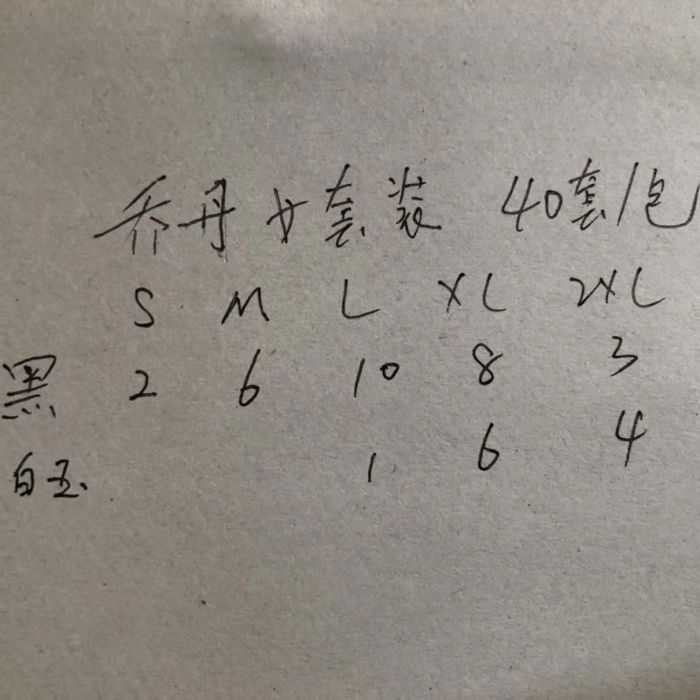 乔丹女套装 40套/包
S M L XL 2XL
黑 2 6 10 8 3
白玉 1 6 4